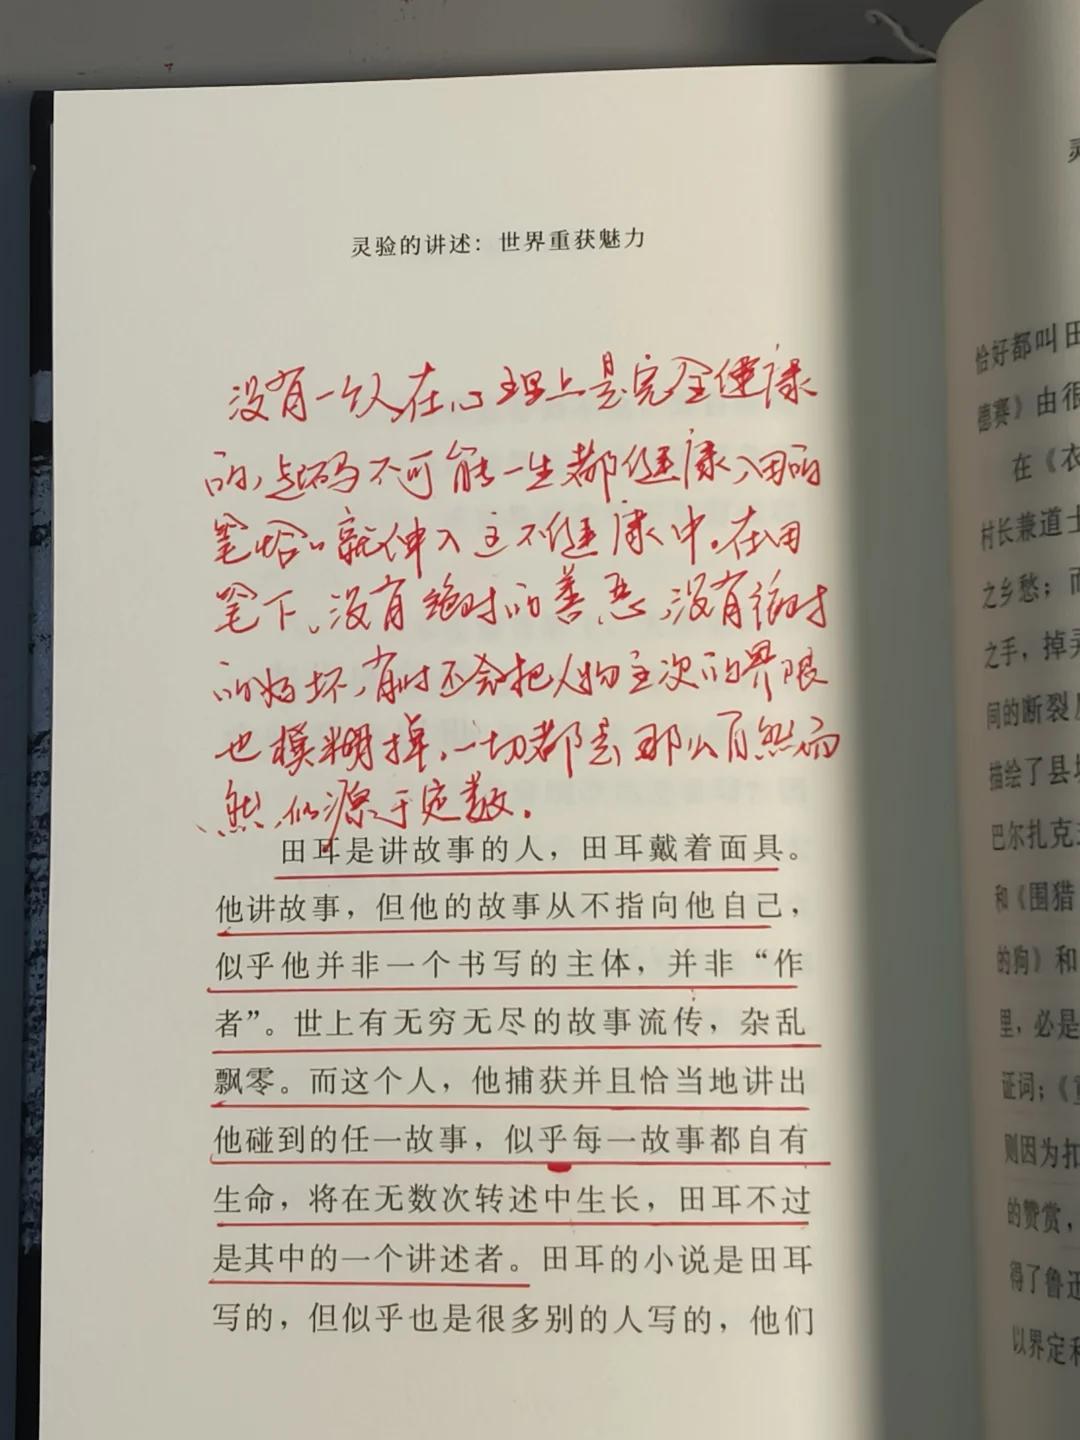 灵验的讲述：世界重获魅力
没有一个人在心理上是完全健康
的，起码不可能一生都健康，田的
笔恰恰就伸入这不健康中。在田
笔下，没有绝对的善恶，没有绝对
的好坏，有时还会把人物主次的界限
也模糊掉，一切都是那么自然而
然，似源于定数。
田耳是讲故事的人，田耳戴着面具。
他讲故事，但他的故事从不指向他自己，
似乎他并非一个书写的主体，并非“作
者”。世上有无穷无尽的故事流传，杂乱
飘零。而这个人，他捕获并且恰当地讲出
他碰到的任一故事，似乎每一故事都自有
生命，将在无数次转述中生长，田耳不过
是其中的一个讲述者。田耳的小说是田耳
写的，但似乎也是很多别的人写的，他们
灵
恰好都叫田
德赛》由很
在《衣
村长兼道士
之乡愁；而
之手，掉弄
同的断裂
描绘了县城
巴尔扎克
和《围猎
的狗》和
里，必是
证词；《
则因为扣
的赞赏，
得了鲁迅
以界定和